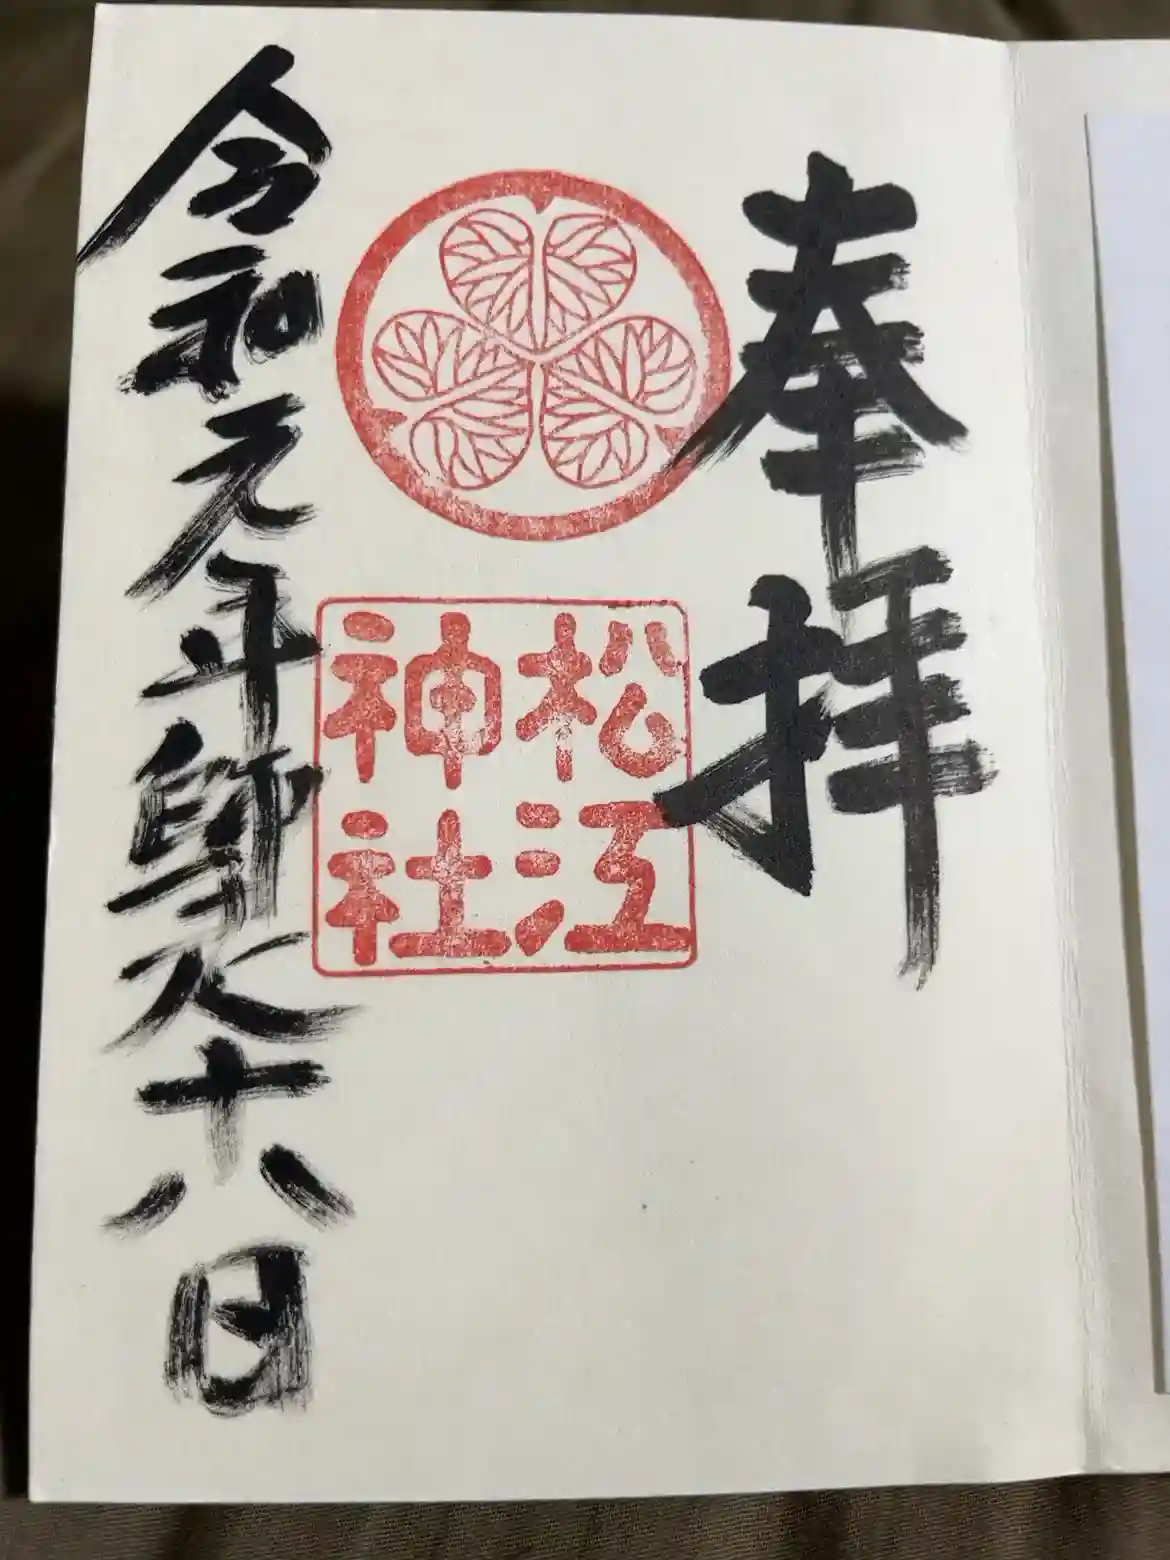 奉拝
松江
神社
令和元年師走十八日